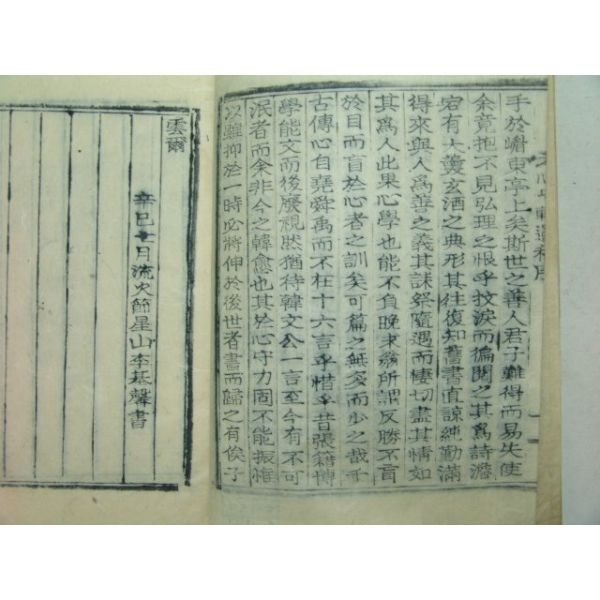 手於嶦東亭上矣斯世之善人君子難得而易失使
余竟抱不見弘理之恨乎抆淚而徧閱之其爲詩澹
宕有大羹玄酒之典形其往復知舊書直諒純勤滿
得來與人爲善之義其誄祭隨遇而棲切盡其情如
其爲人此果心學也能不負晩求翁所謂反勝不盲
於目而盲於心者之訓矣可篇之無多而少之哉乎
古傳心自堯舜禹而不在十六言乎惜乎昔張籍博
學能文而後廢視然猶待韓文公一言至今有不可
泯者而余非今之韓愈也其於心守力固不能振惜
以雖抑於一時必將伸於後世者書而歸之有俟子
雲爾
辛巳七月流火節星山李基馨書